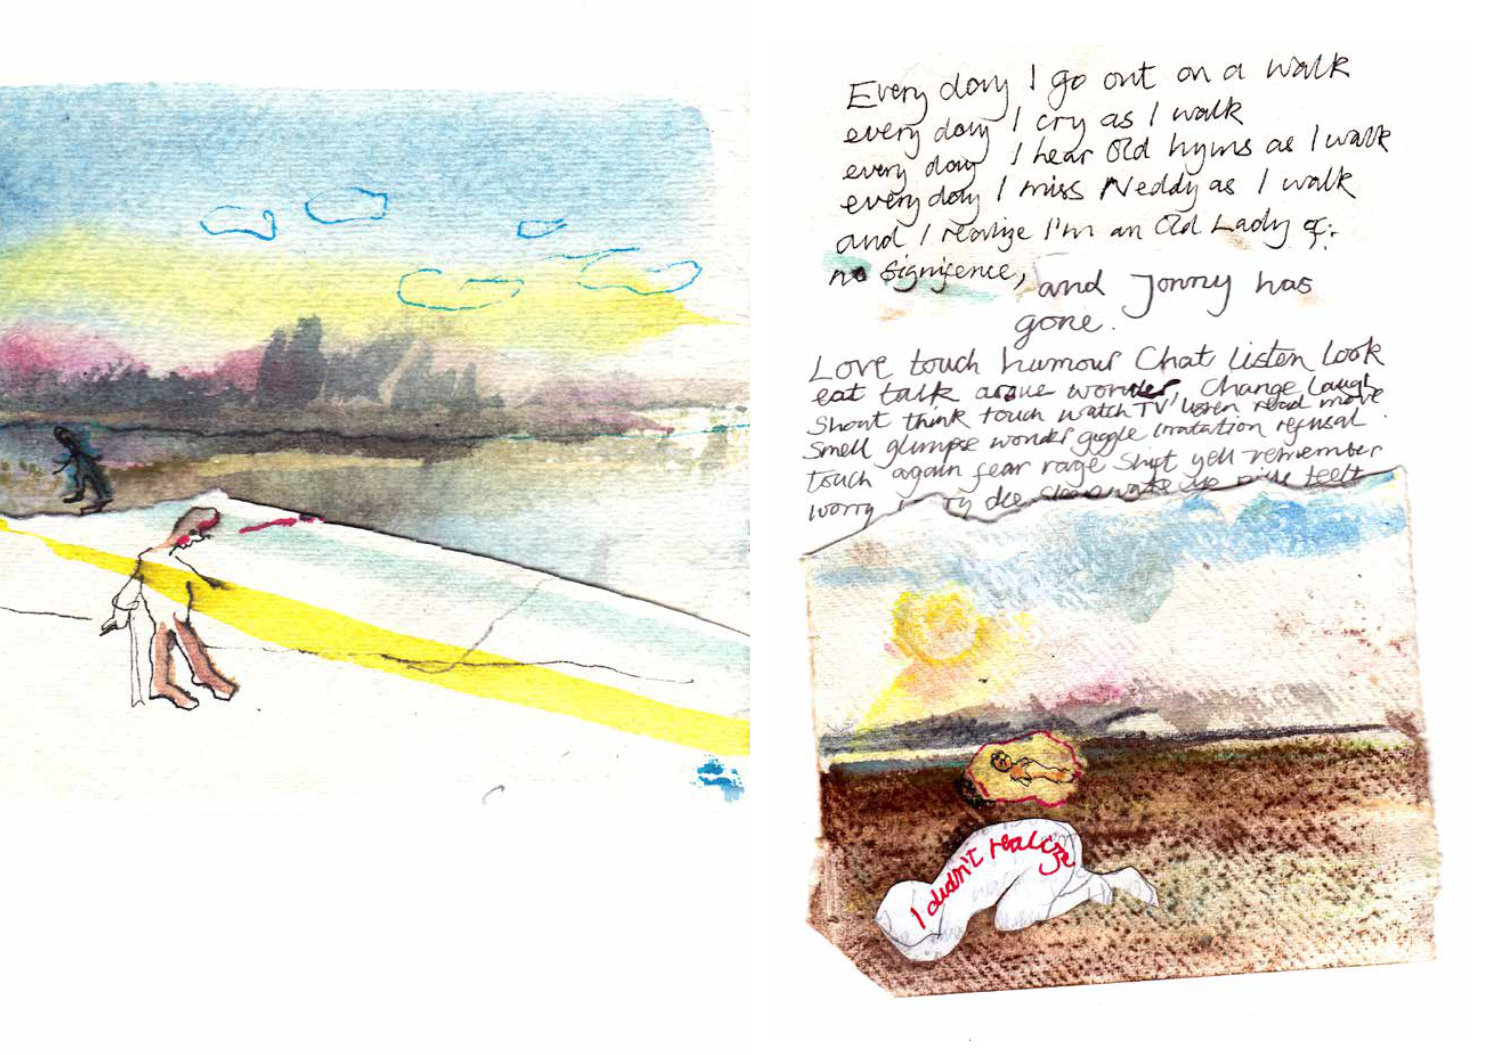 Every day I go out on a walk
every day I cry as I walk
every day I hear Old hyms as I walk
every day I miss Neddy as I walk
and I realize I'm an Old Lady of
no signifence,
and Jonny has
gone.
Love touch humour Chat listen look
eat talk argue wonder, change laugh
Shout think touch watch TV listen read move
Smell glimpse wonder giggle irratation refusal
touch again fear rage Shift yell remember
worry
I didn't realize